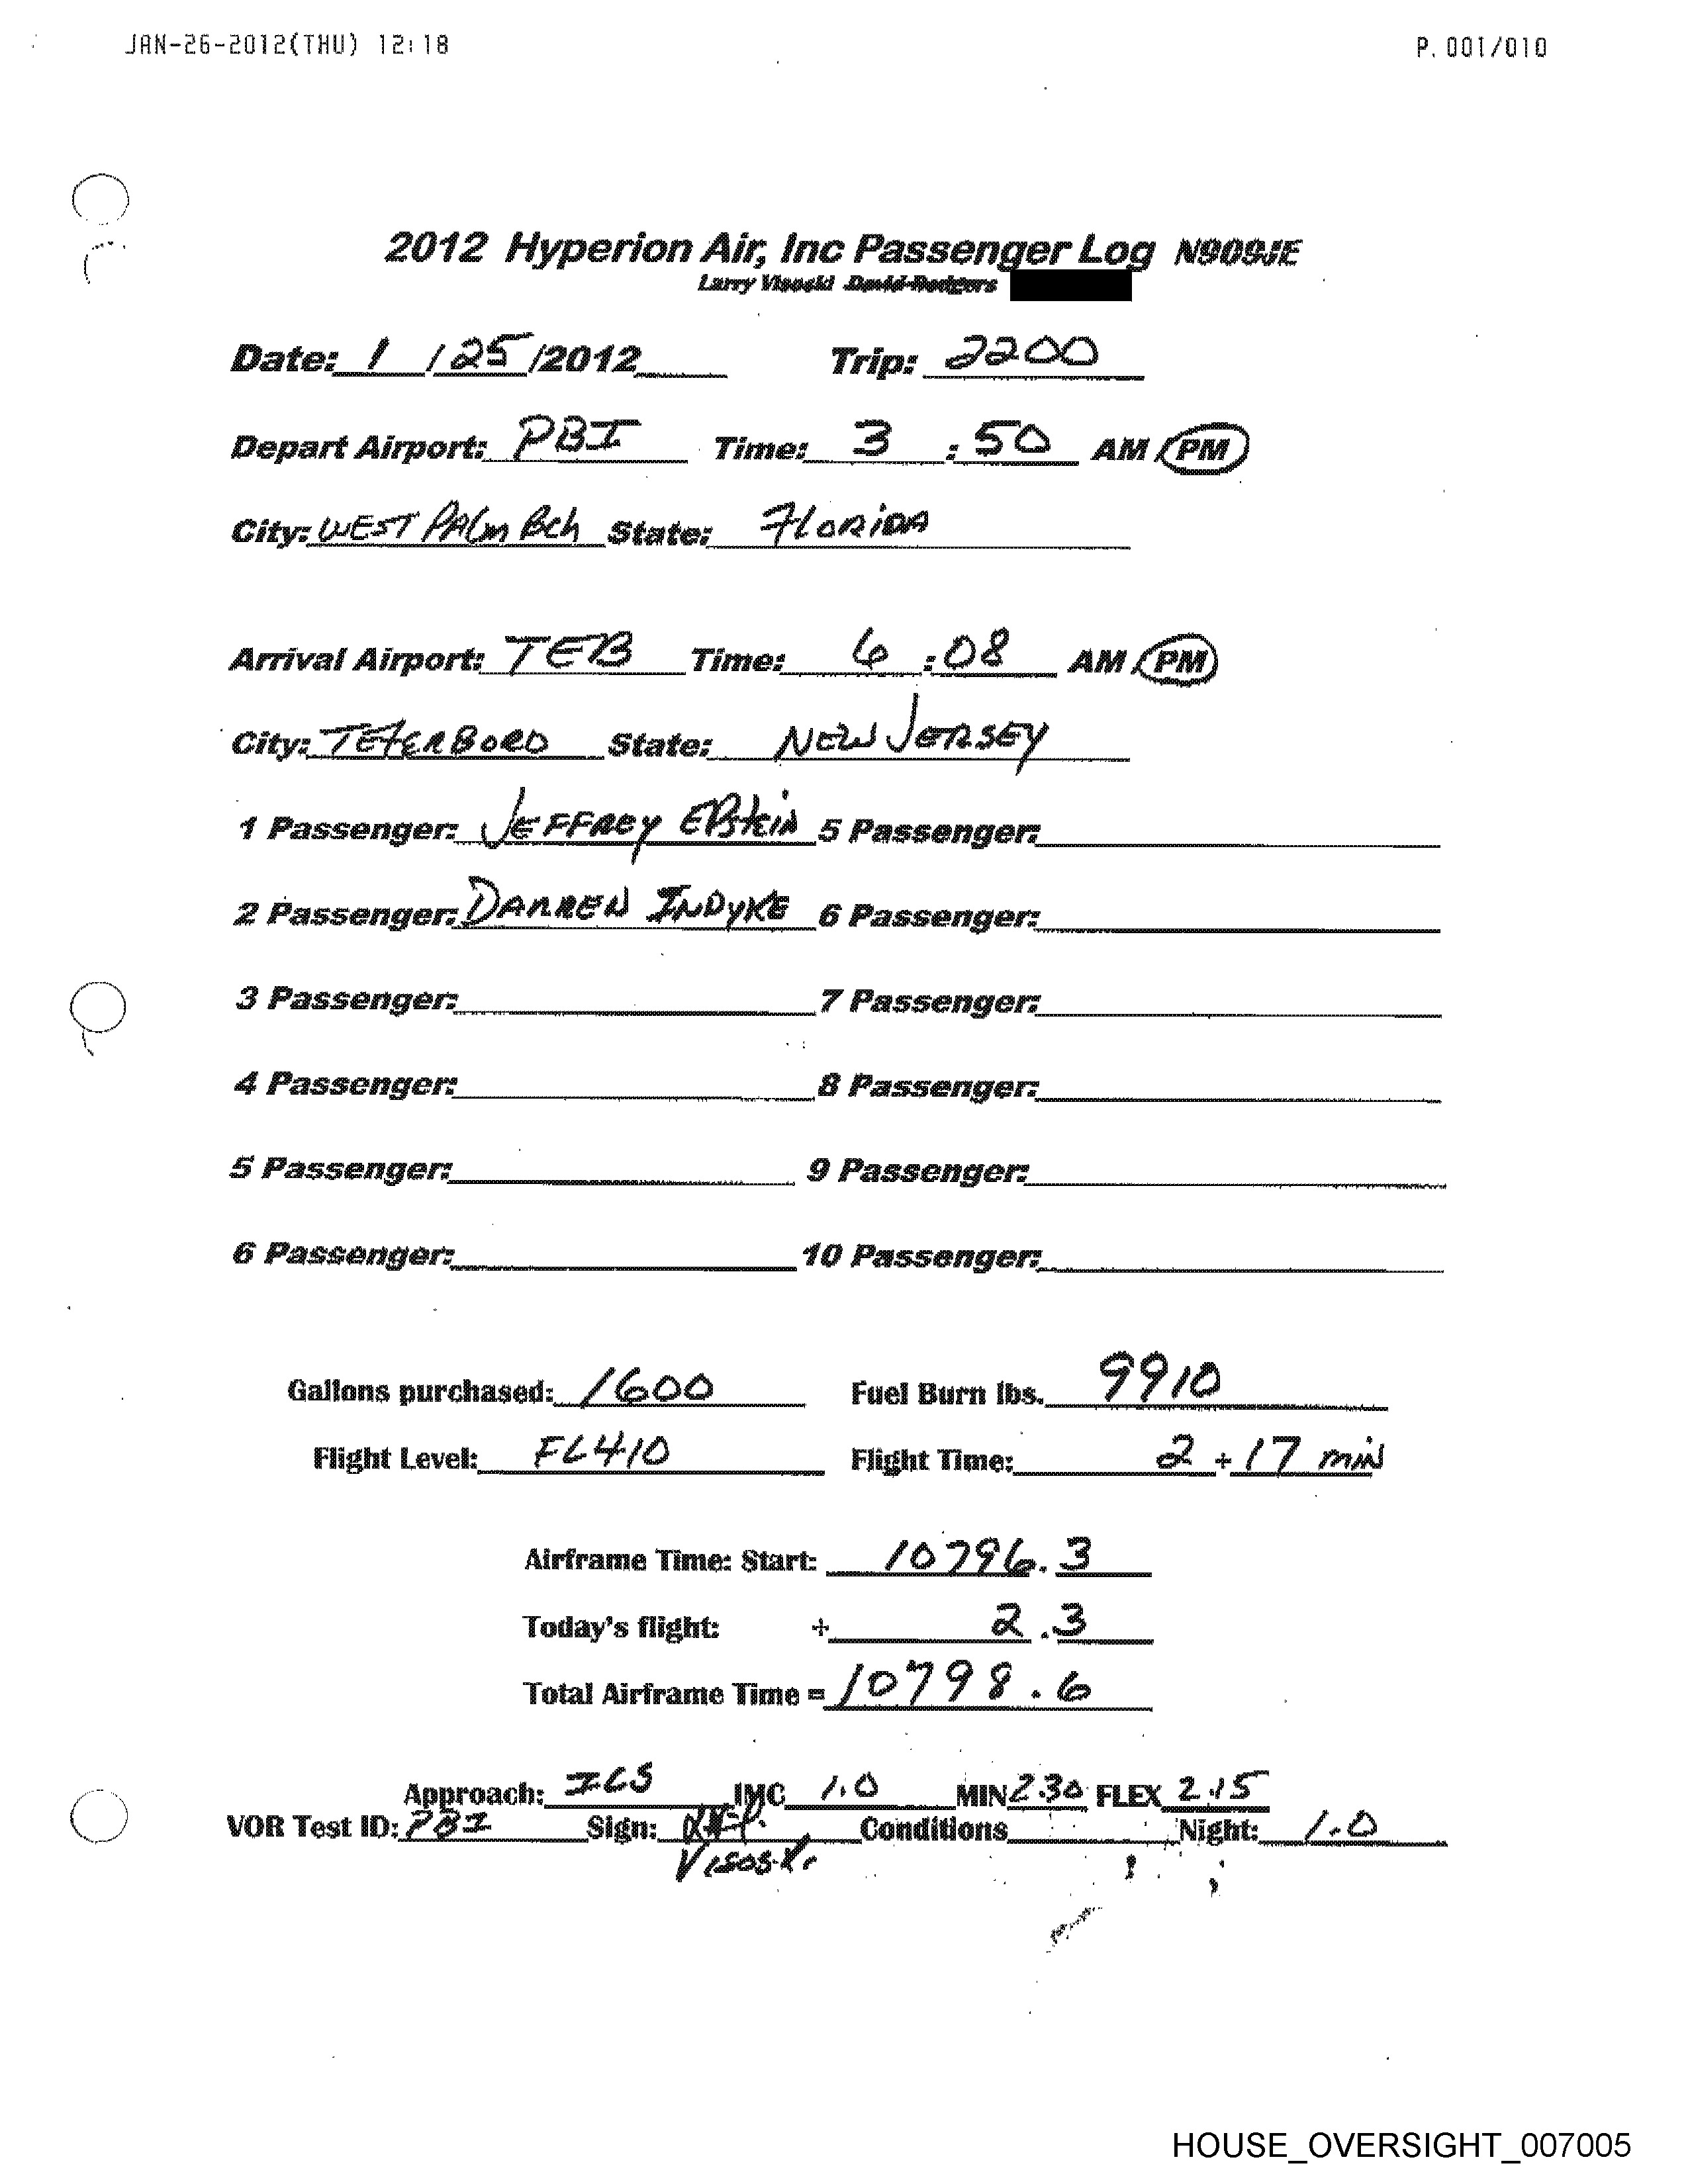 JAN-26-2012(THU) 12:18 P.001/010
2012 Hyperion Air, Inc Passenger Log N909JE
Larry Visoski David Rodgers
Date: 1 / 25 /2012 Trip: 2200
Depart Airport: PBI Time: 3 : 50 AM / PM
City: WEST PALm Bch State: FLORIDA
Arrival Airport: TEB Time: 6 : 08 AM / PM
City: TETERBORO State: NEW JERSEY
1 Passenger: JEFFREY EPstEiN 5 Passenger:
2 Passenger: DARREN INDYKE 6 Passenger:
3 Passenger: 7 Passenger:
4 Passenger: 8 Passenger:
5 Passenger: 9 Passenger:
6 Passenger: 10 Passenger:
Gallons purchased: 1600 Fuel Burn lbs. 9910
Flight Level: FL410 Flight Time: 2 + 17 miN
Airframe Time: Start: 10796.3
Today's flight: + 2.3
Total Airframe Time = 10798.6
Approach: ILS IMC 1.0 MIN 2:30 FLEX 2.15
VOR Test ID: PBI Sign: Conditions Night: 1.0
Visoski
HOUSE_OVERSIGHT_007005